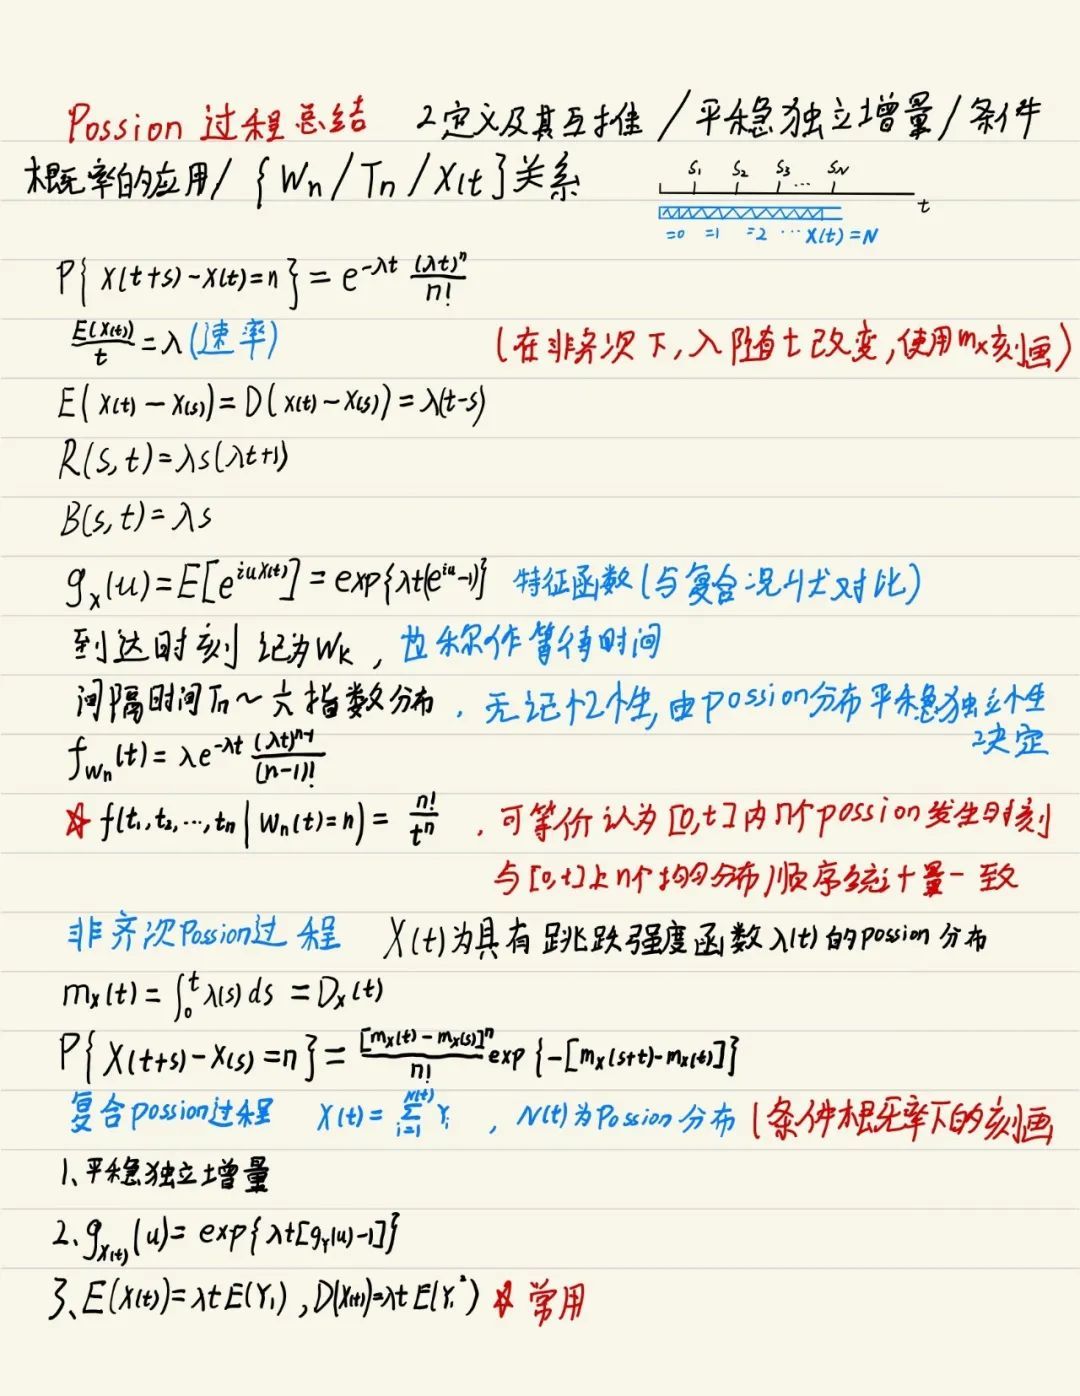 Possion 过程总结 2定义及其互推 / 平稳独立增量 / 条件
概率的应用 / { Wn / Tn / X(t } 关系
S₁ S₂ S₃ ... SN
t
=0 =1 =2 ... X(t) = N
P{ X(t+s) - X(t) = n } = e^{-λt} (λt)^n / n!
E(X(t)) / t = λ (速率) (在非齐次下, λ随t改变, 使用mx刻画)
E( X(t) - X(s) ) = D( X(t) - X(s) ) = λ(t-s)
R(s, t) = λs(λt+1)
B(s, t) = λs
g_x(u) = E[e^{iuX(t)}] = exp{λt(e^{iu}-1)} 特征函数 (与复合泊松对比)
到达时刻 记为 Wk , 也称作等待时间
间隔时间 Tn ~ 指数分布 . 无记忆性, 由possion分布平稳独立性
决定
f_{Wn}(t) = λe^{-λt} (λt)^{n-1} / (n-1)!
☆ f(t₁, t₂, ..., tn | Wn(t) = n) = n! / t^n , 可等价认为 [0,t] 内 n个possion发生时刻
与 [0,t] 上 n个均匀分布顺序统计量一致
非齐次Possion过程 X(t)为具有跳跃强度函数 λ(t) 的 possion 分布
m_x(t) = ∫₀^t λ(s) ds = D_x(t)
P{ X(t+s) - X(s) = n } = [m_x(t) - m_x(s)]^n / n! exp {-[m_x(s+t) - m_x(t)]}
复合possion过程 X(t) = Σ_{i=1}^{N(t)} Yi , N(t) 为 Possion 分布 (条件概率下的刻画
1、平稳独立增量
2、g_{X(t)}(u) = exp{ λt[g_Y(u)-1]}
3、E(X(t)) = λt E(Y₁) , D(X(t)) = λt E(Y₁²) ☆ 常用